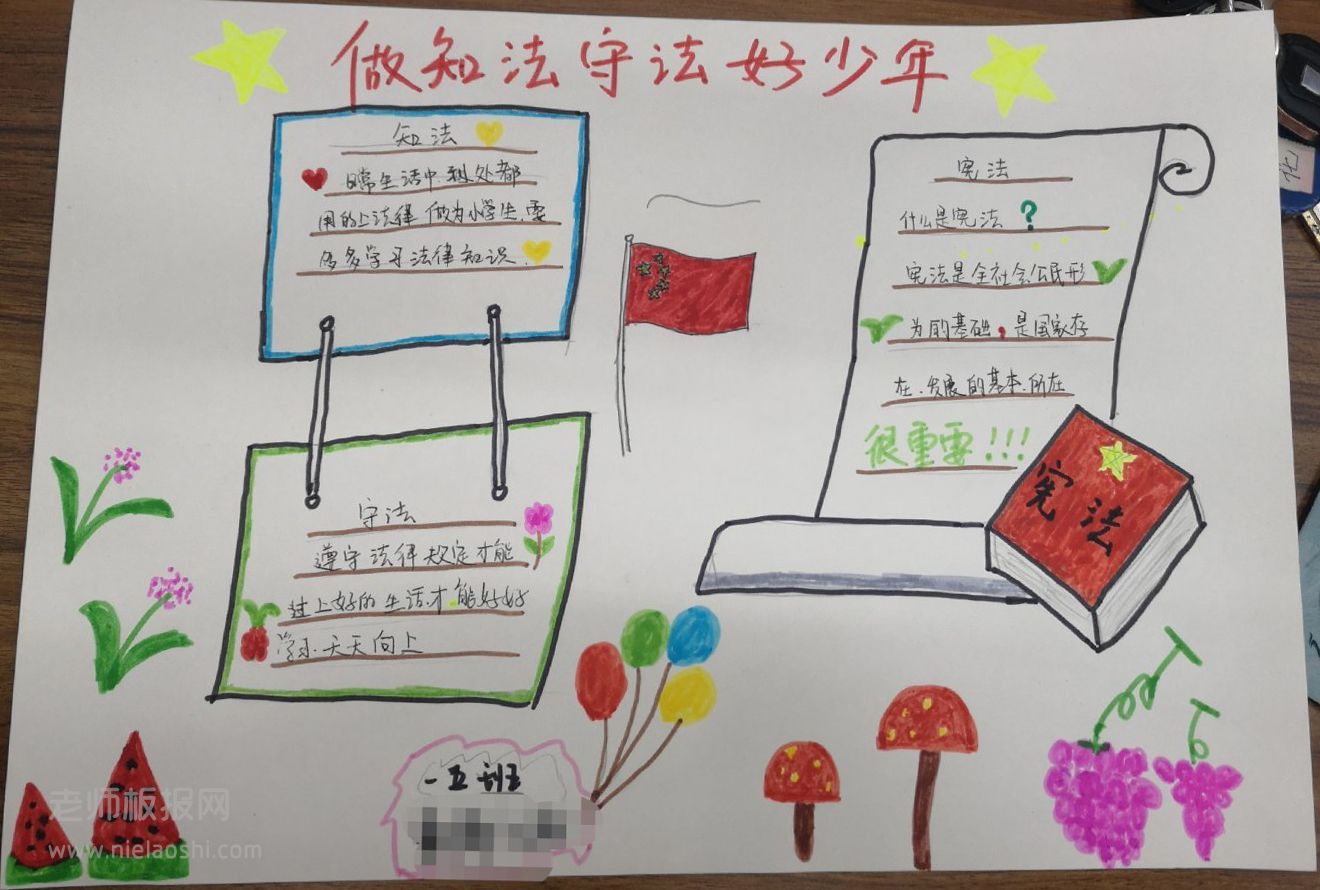 做知法守法好少年
知法
日常生活中到处都
用的上法律 做为小学生,要
多多学习法律知识.
守法
遵守法律规定才能
过上好的生活.才能好好
学习.天天向上
宪法
什么是宪法?
宪法是全社会公民形
为的基础,是国家存
在.发展的基本.所在
很重要!!!
宪法
一五班
老师板报网
www.nielaoshi.com